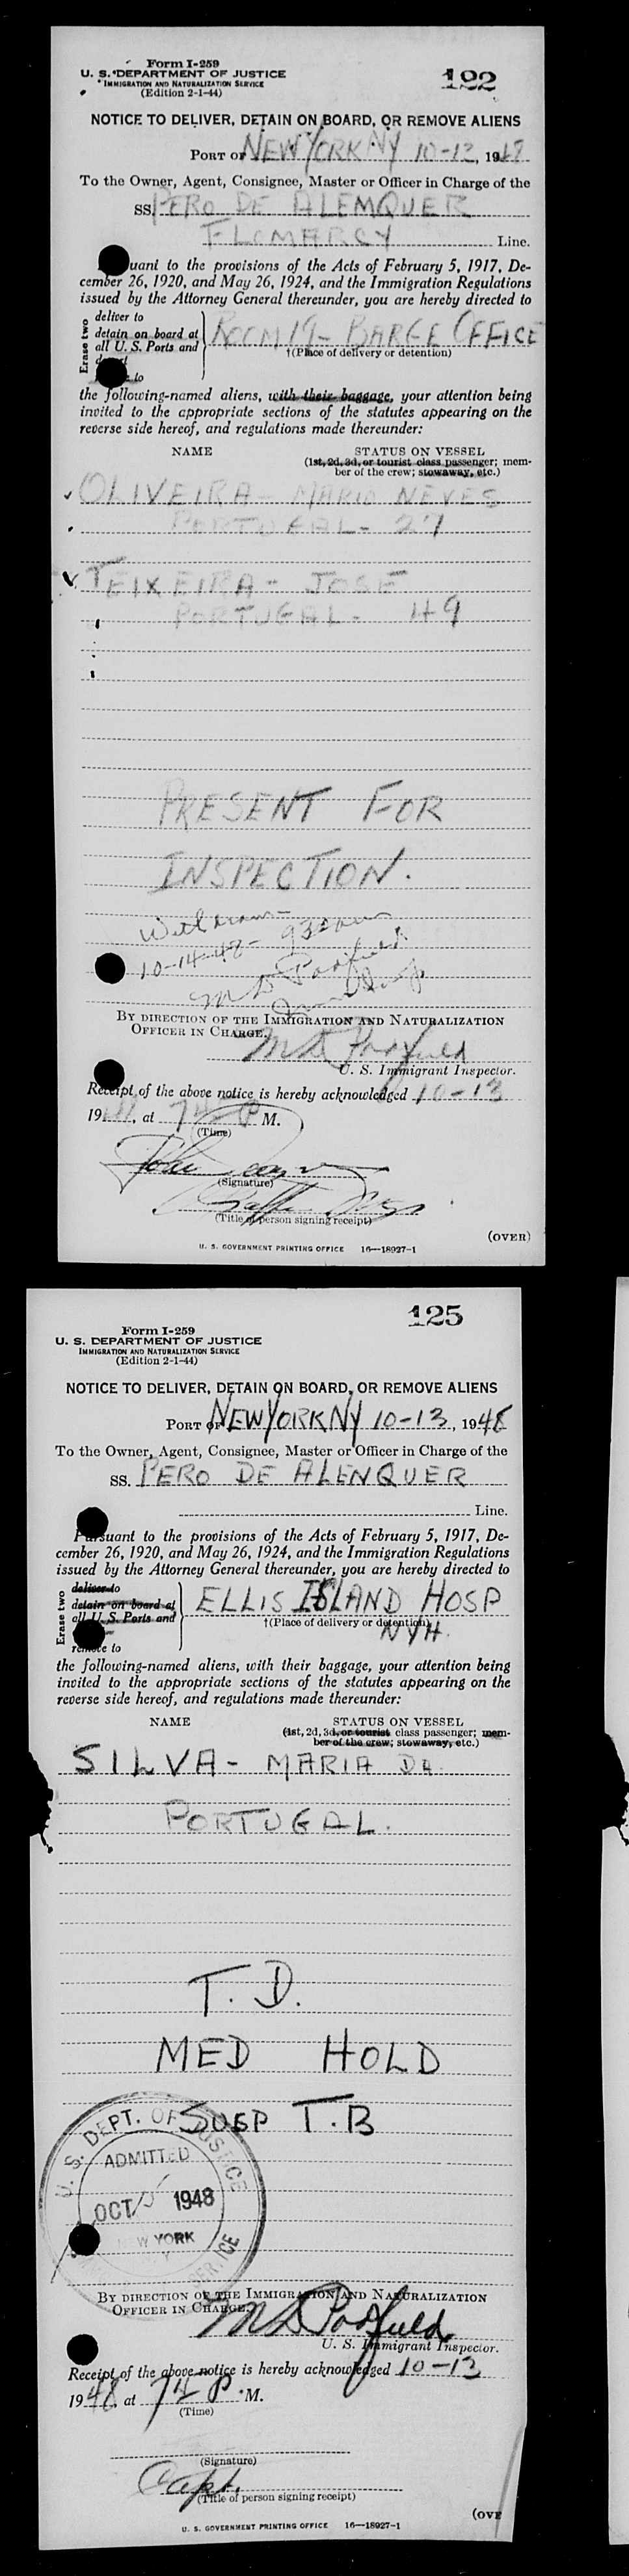 Form I-259
U. S. DEPARTMENT OF JUSTICE
IMMIGRATION AND NATURALIZATION SERVICE
(Edition 2-1-44)
192
NOTICE TO DELIVER, DETAIN ON BOARD, OR REMOVE ALIENS
PORT OF NEW YORK NY 10-12, 1948
To the Owner, Agent, Consignee, Master or Officer in Charge of the
SS. PERO DE ALEMQUER
FLOMARCY Line.
uant to the provisions of the Acts of February 5, 1917, De-
cember 26, 1920, and May 26, 1924, and the Immigration Regulations
issued by the Attorney General thereunder, you are hereby directed to
Erase two
deliver to
detain on board at
all U. S. Ports and
to
ROOM 19- BARGE OFFICE
†(Place of delivery or detention)
the following-named aliens, with their baggage, your attention being
invited to the appropriate sections of the statutes appearing on the
reverse side hereof, and regulations made thereunder:
NAME STATUS ON VESSEL
(1st, 2d, 3d, or tourist class passenger; mem-
ber of the crew; stowaway, etc.)
OLIVEIRA- MARIO NEVES
PORTUGAL- 27
TEIXEIRA- JOSE
PORTUGAL- 49
PRESENT FOR
INSPECTION.
10-14-48- 930 am
M D Padfield
BY DIRECTION OF THE IMMIGRATION AND NATURALIZATION
OFFICER IN CHARGE.
M D Padfield
U. S. Immigrant Inspector.
Receipt of the above notice is hereby acknowledged 10-13
1948, at 7 15 P M.
(Time)
John
(Signature)
(Title of person signing receipt)
(OVER)
U. S. GOVERNMENT PRINTING OFFICE 16—18927-1
125
Form I-259
U. S. DEPARTMENT OF JUSTICE
IMMIGRATION AND NATURALIZATION SERVICE
(Edition 2-1-44)
NOTICE TO DELIVER, DETAIN ON BOARD, OR REMOVE ALIENS
PORT OF NEW YORK NY 10-13, 1948
To the Owner, Agent, Consignee, Master or Officer in Charge of the
SS. PERO DE ALENQUER
Line.
Pursuant to the provisions of the Acts of February 5, 1917, De-
cember 26, 1920, and May 26, 1924, and the Immigration Regulations
issued by the Attorney General thereunder, you are hereby directed to
Erase two
deliver to
detain on board at
all U. S. Ports and
remove to
ELLIS ISLAND HOSP
†(Place of delivery or detention)
NYH.
the following-named aliens, with their baggage, your attention being
invited to the appropriate sections of the statutes appearing on the
reverse side hereof, and regulations made thereunder:
NAME STATUS ON VESSEL
(1st, 2d, 3d, or tourist class passenger; mem-
ber of the crew; stowaway, etc.)
SILVA- MARIA DA
PORTUGAL.
T. D.
MED HOLD
SUSP T.B
U. S. DEPT. OF JUSTICE
ADMITTED
OCT 1948
W YORK
BY DIRECTION OF THE IMMIGRATION AND NATURALIZATION
OFFICER IN CHARGE.
M D Padfield
U. S. Immigrant Inspector.
Receipt of the above notice is hereby acknowledged 10-13
1948, at 7 15 P. M.
(Time)
(Signature)
Capt.
(Title of person signing receipt)
(OVE
U. S. GOVERNMENT PRINTING OFFICE 16—18927-1